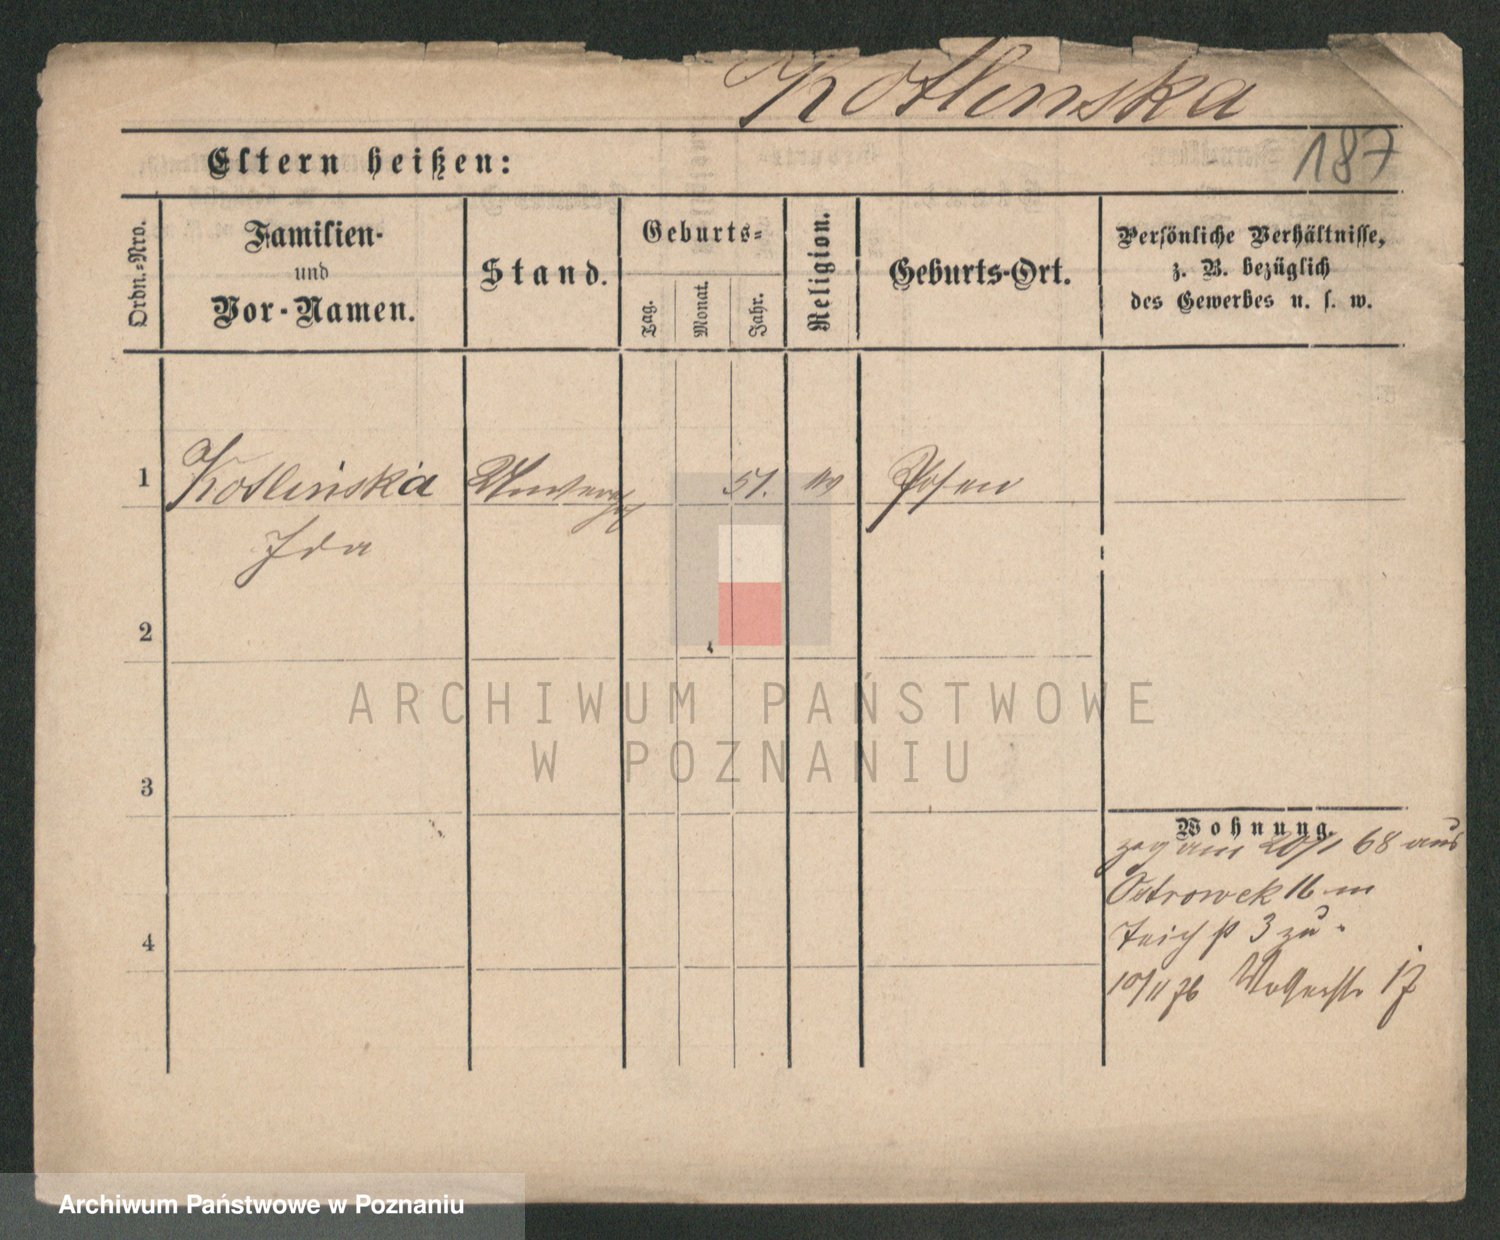 Kotlinska
187
Eltern heißen:
Ordn.-Nro.
Familien-
und
Vor-Namen.
Stand.
Geburts-
Tag.
Monat.
Jahr.
Religion.
Geburts-Ort.
Persönliche Verhältnisse,
z. B. bezüglich
des Gewerbes u. s. w.
1
Kotlińska
Unvereh
51.
ev
Posen
Ida
2
3
4
Wohnung.
zog am 20/1 68 aus
Ostrowek 16 m
Teich st 3 zu.
10/11 76
17
ARCHIWUM PAŃSTWOWE
W POZNANIU
Archiwum Państwowe w Poznaniu